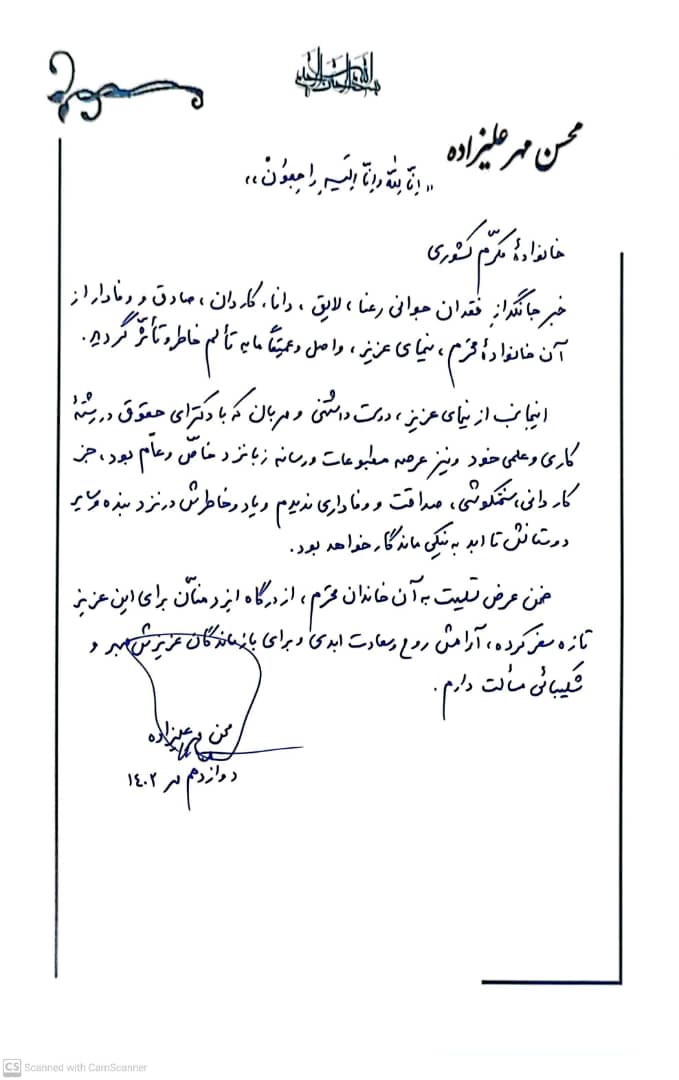 بسم الله الرحمن الرحیم
محسن مهرعلیزاده
«انّا للّه و انّا الیه راجعون»
خانوادهٔ مکرّم کشوری
خبر جانگداز فقدان جوانی رعنا، لایق، دانا، کاردان، صادق و وفادار از
آن خانوادهٔ محترم، نیمای عزیز، واصل و عمیقاً مایه تألم خاطر و تأثّر گردید.
اینجانب از نیمای عزیز، دوست داشتنی و مهربان که با دکترای حقوق در رشتهٔ
کاری و علمی خود و نیز عرصه مطبوعات و رسانه زبانزد خاصّ و عامّ بود، جز
کاردانی، سختکوشی، صداقت و وفاداری ندیدم و یاد و خاطرش در نزد بنده و سایر
دوستانش تا ابد به نیکی ماندگار خواهد بود.
ضمن عرض تسلیت به آن خاندان محترم، از درگاه ایزد منّان برای این عزیز
تازه سفر کرده، آرامش روح و سعادت ابدی و برای بازماندگان عزیزش صبر و
شکیبائی مسألت دارم.
محسن مهرعلیزاده
دوازدهم مهر ۱۴۰۲
CS Scanned with CamScanner